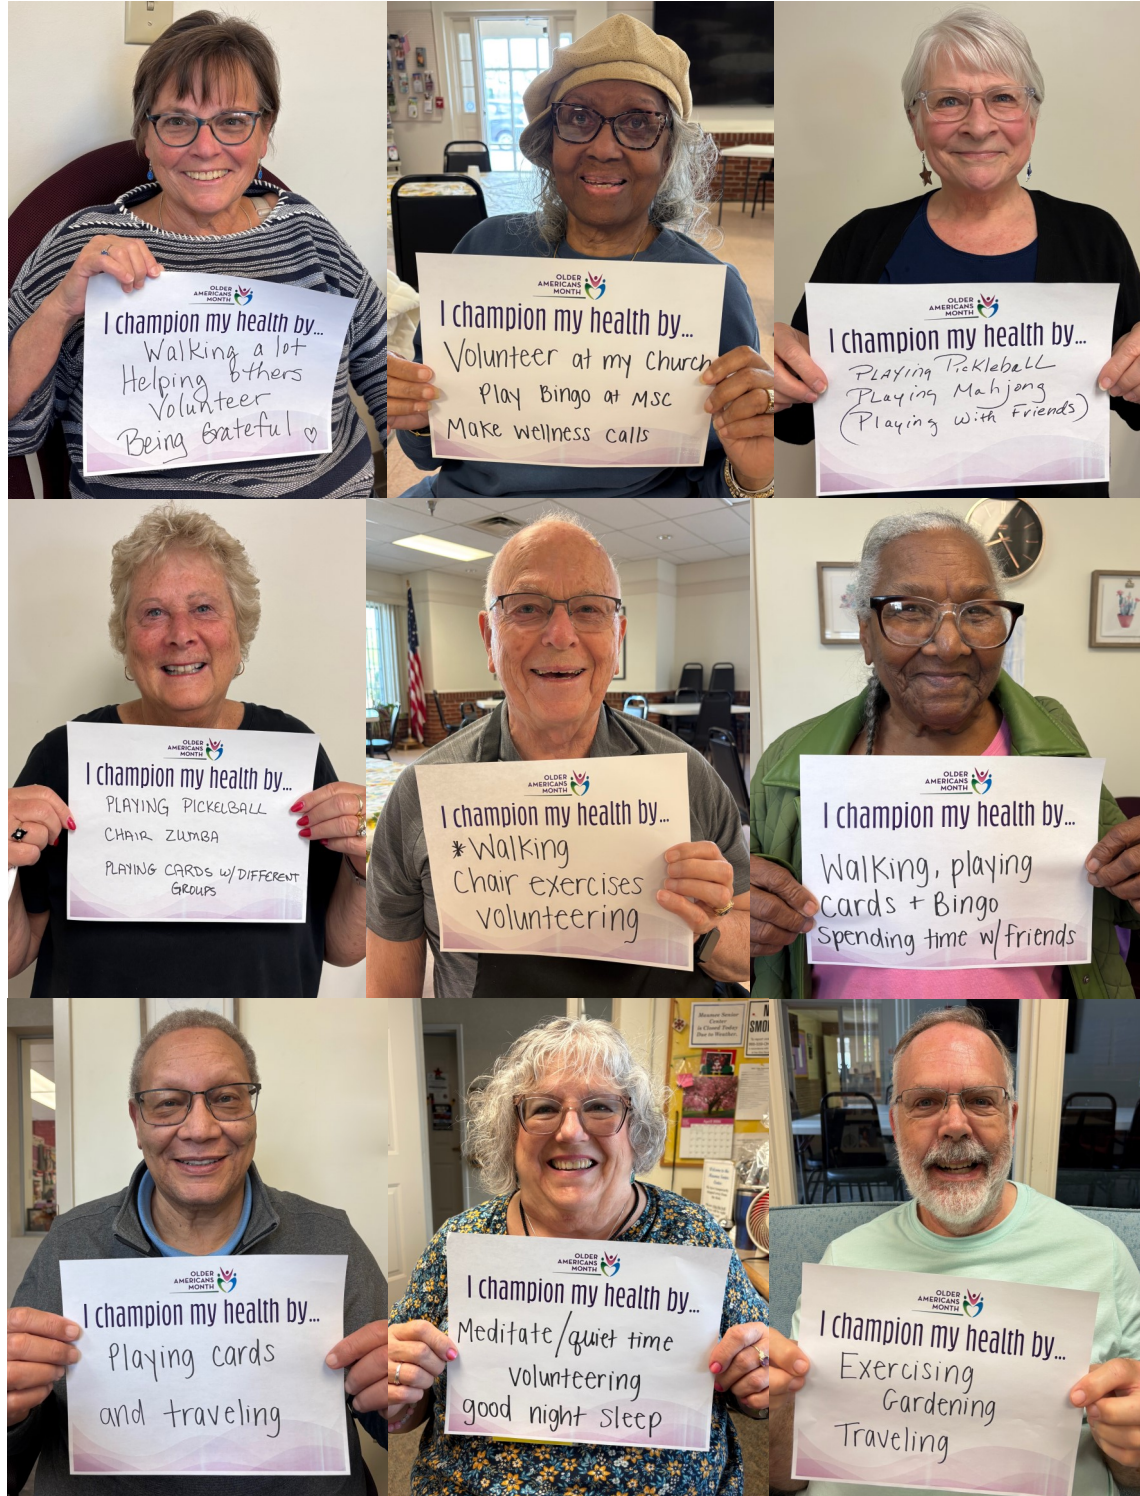 OLDER
AMERICANS
MONTH
I champion my health by...
Walking a lot
Helping others
Volunteer
Being Grateful ♡
OLDER
AMERICANS
MONTH
I champion my health by...
Volunteer at my Church
Play Bingo at MSC
Make wellness calls
OLDER
AMERICANS
MONTH
I champion my health by...
PLAYing Pickleball
PLaying Mahjong
(Playing with Friends)
OLDER
AMERICANS
MONTH
I champion my health by...
PLAYING PICKELBALL
CHAIR ZUMBA
PLAYING CARDS W/DIFFERENT
GROUPS
OLDER
AMERICANS
MONTH
I champion my health by...
*Walking
Chair exercises
volunteering
OLDER
AMERICANS
MONTH
I champion my health by...
Walking, playing
cards + Bingo
Spending time w/friends
OLDER
AMERICANS
MONTH
I champion my health by...
Playing cards
and traveling
Center
is Closed Today
Due to Weather.
OLDER
AMERICANS
MONTH
I champion my health by...
Meditate/quiet time
volunteering
good night sleep
OLDER
AMERICANS
MONTH
I champion my health by...
Exercising
Gardening
Traveling